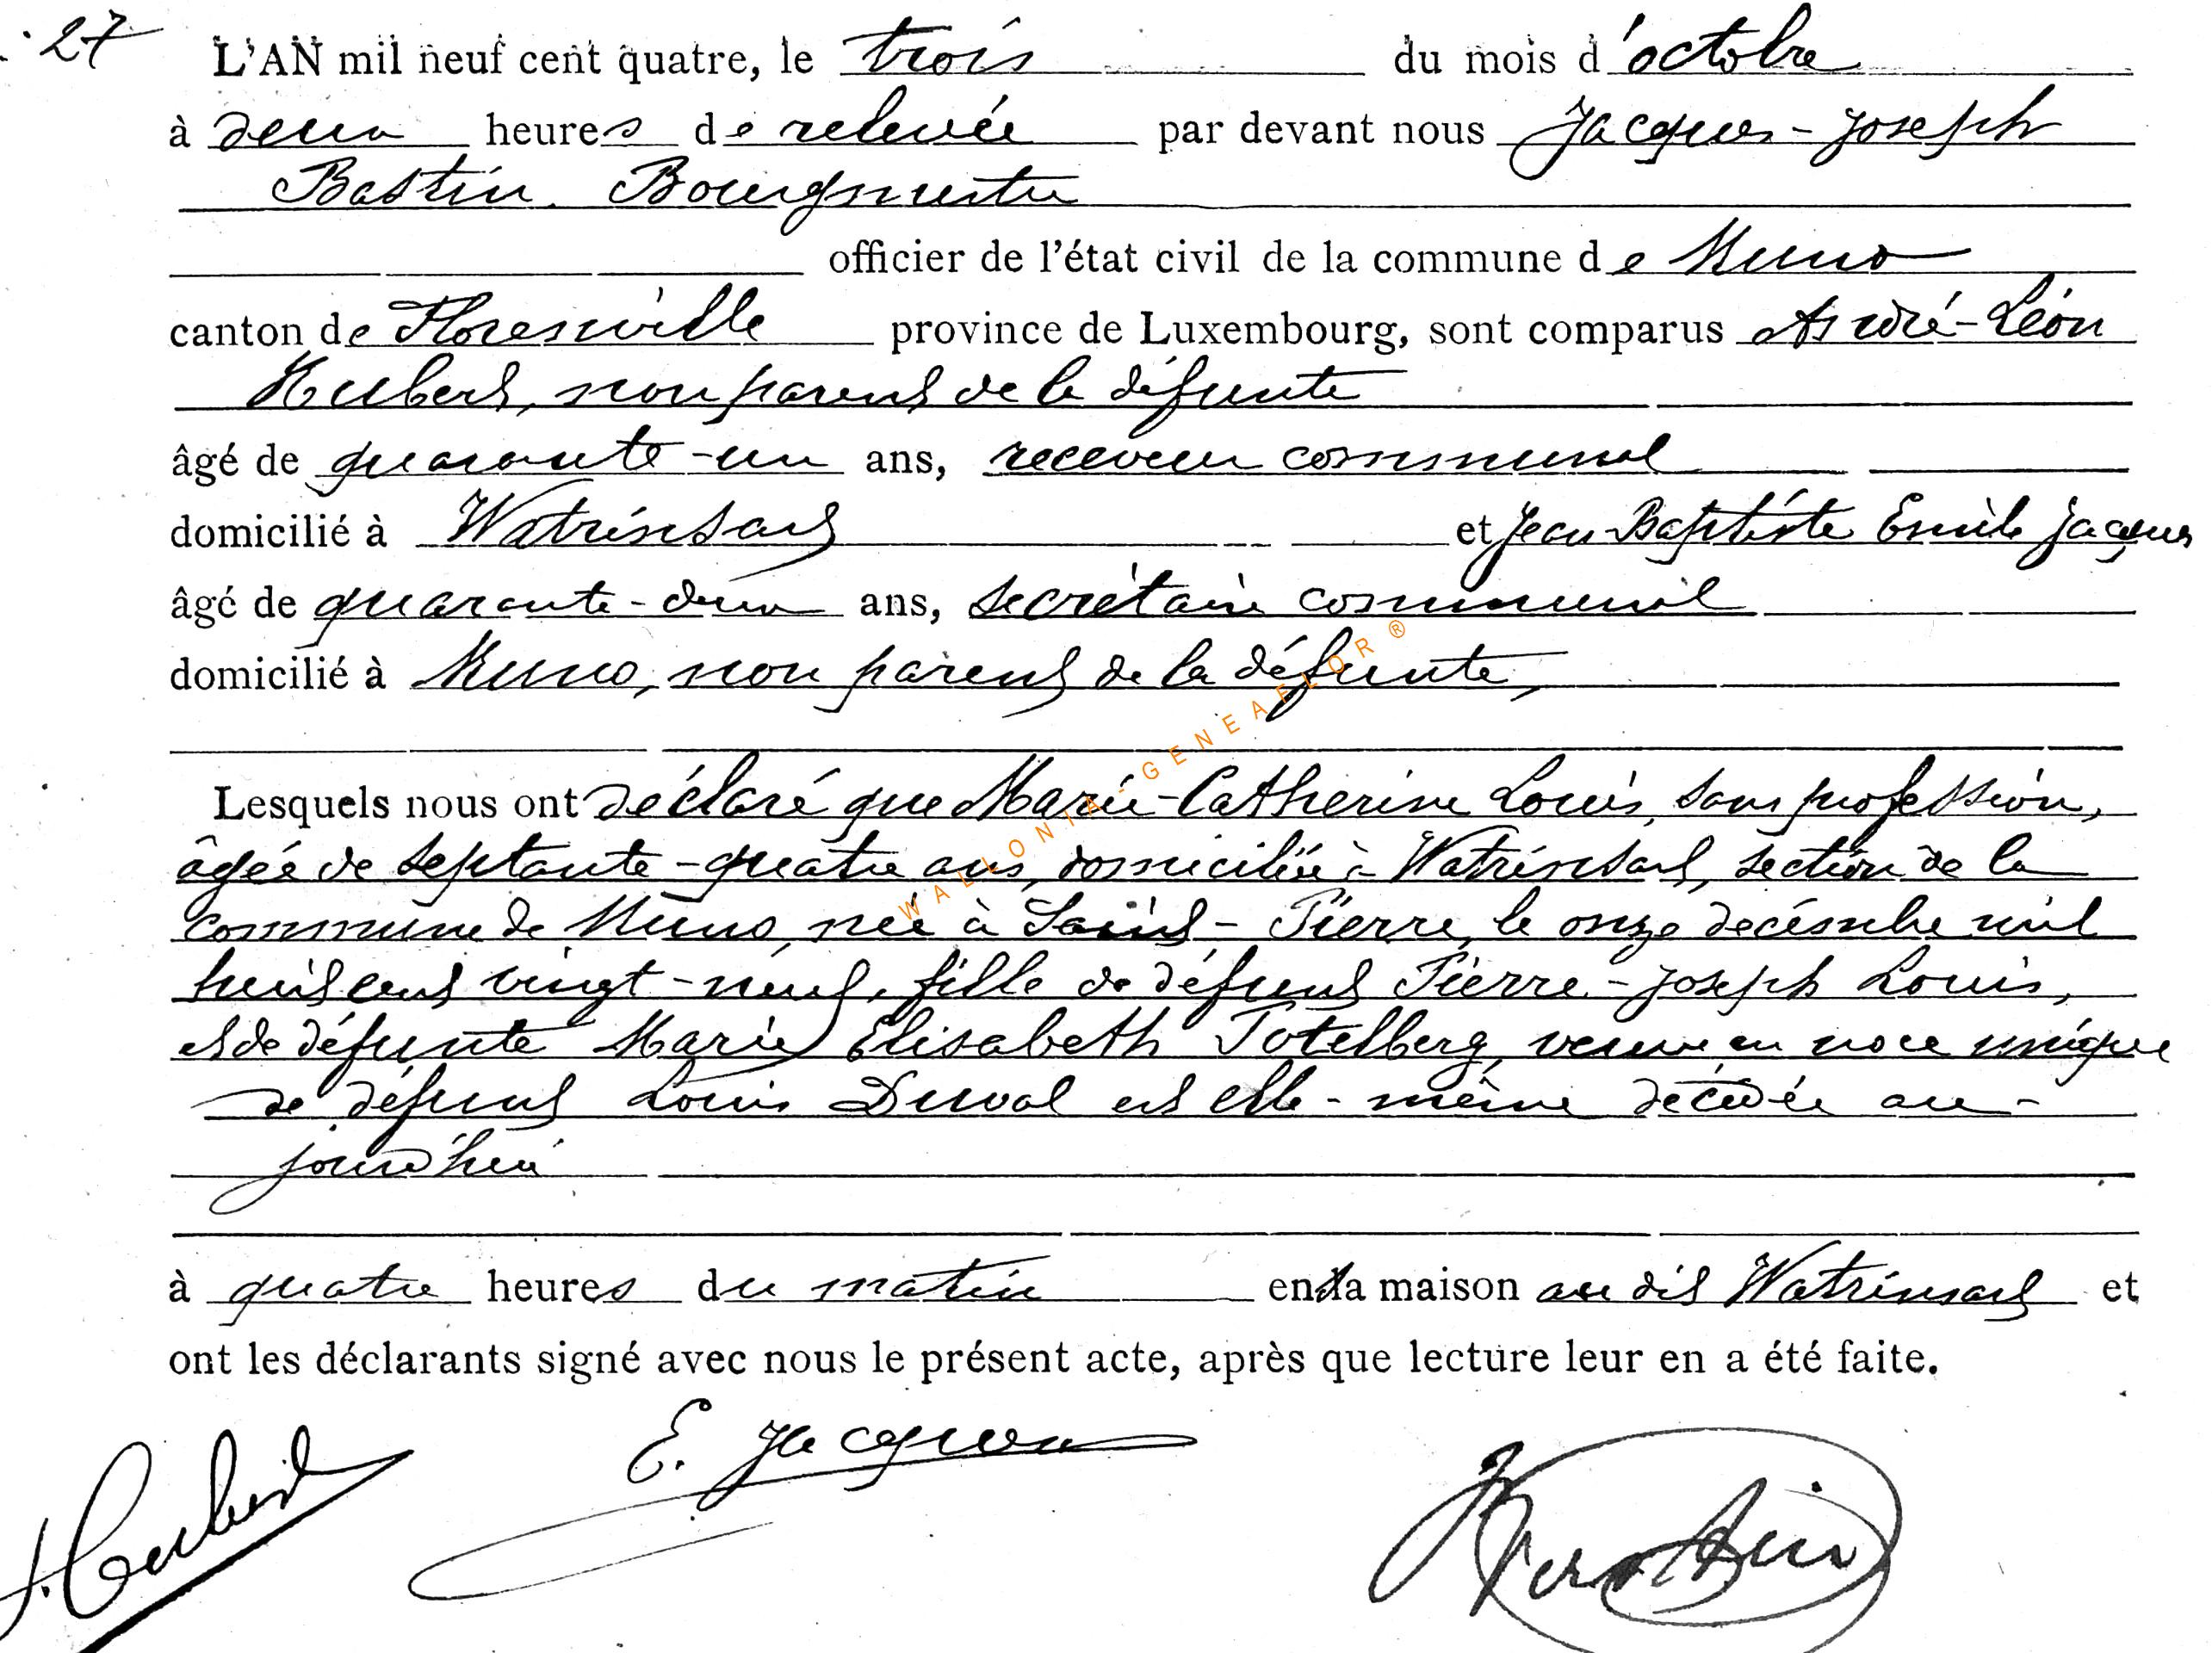 27
L'AN mil neuf cent quatre, le trois du mois d'octobre
à deux heures de relevée par devant nous Jacques-Joseph
Bastin, Bourgmestre
officier de l'état civil de la commune de Muno
canton de Florenville province de Luxembourg, sont comparus André-Léon
Hubert, non parent de la défunte
âgé de quarante-un ans, receveur communal
domicilié à Watrinsart et Jean-Baptiste Emile Jacques
âgé de quarante-deux ans, secrétaire communal
domicilié à Muno, non parent de la défunte,
Lesquels nous ont déclaré que Marie-Catherine Louis, sans profession,
âgée de septante-quatre ans, domiciliée à Watrinsart, section de la
commune de Muno, née à Saint-Pierre, le onze décembre mil
huit cent vingt-neuf, fille de défunt Pierre-Joseph Louis,
et de défunte Marie Elisabeth Totelberg, veuve en noce unique
de défunt Louis Duval est elle-même décédée au-
jourd'hui
à quatre heures du matin en sa maison au dit Watrinsart et
ont les déclarants signé avec nous le présent acte, après que lecture leur en a été faite.
Hubert
E. Jacques
J Bastin
WALLONIA-GENEAFLOR ®